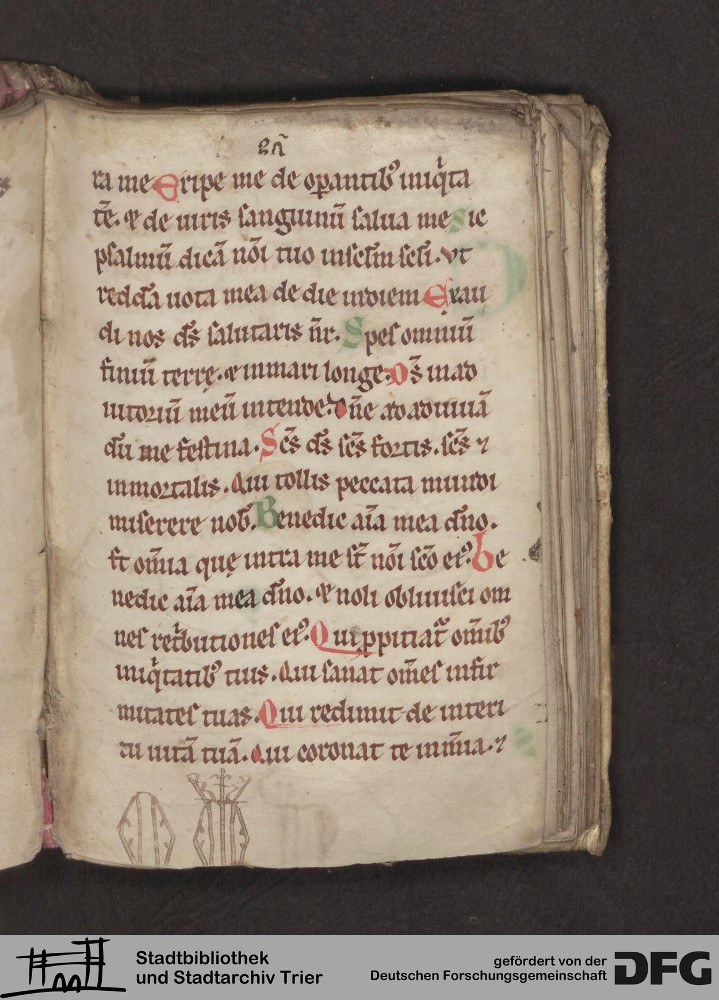 ra me Eripe me de oꝑantibꝰ iniq̄ta
tē. ⁊ de uiris sanguinū salua me Sic
psalmū dicā nōi tuo insclm̄ scli. Vt
reddā uota mea de die indiem Exau
di nos ds̄ salutaris nr̄. Spes omniū
finiū terrę. ⁊ inmari longe. Ds̄ inad
iutoriū meū intende. Dn̄e adadiuuā
dū me festina. Scs̄ ds̄ scs̄ fortis. scs̄ ⁊
inmortalis. Qui tollis peccata mundi
miserere nob̄. Benedic aīa mea dn̄o.
Et om̄ia quę intra me st̄ nōi scō eiꝰ. Be
nedic aīa mea dn̄o. ⁊ noli obliuisci om
nes retͥbutiones eiꝰ. Qui ꝓpitiat᷑ om̄ibꝰ
iniq̄tatibꝰ tuis. Qui sanat om̄es infir
mitates tuas. Qui redimit de interi
tu uitā tuā. Qui coronat te in mīa. ⁊
Stadtbibliothek
und Stadtarchiv Trier
gefördert von der
Deutschen Forschungsgemeinschaft
DFG